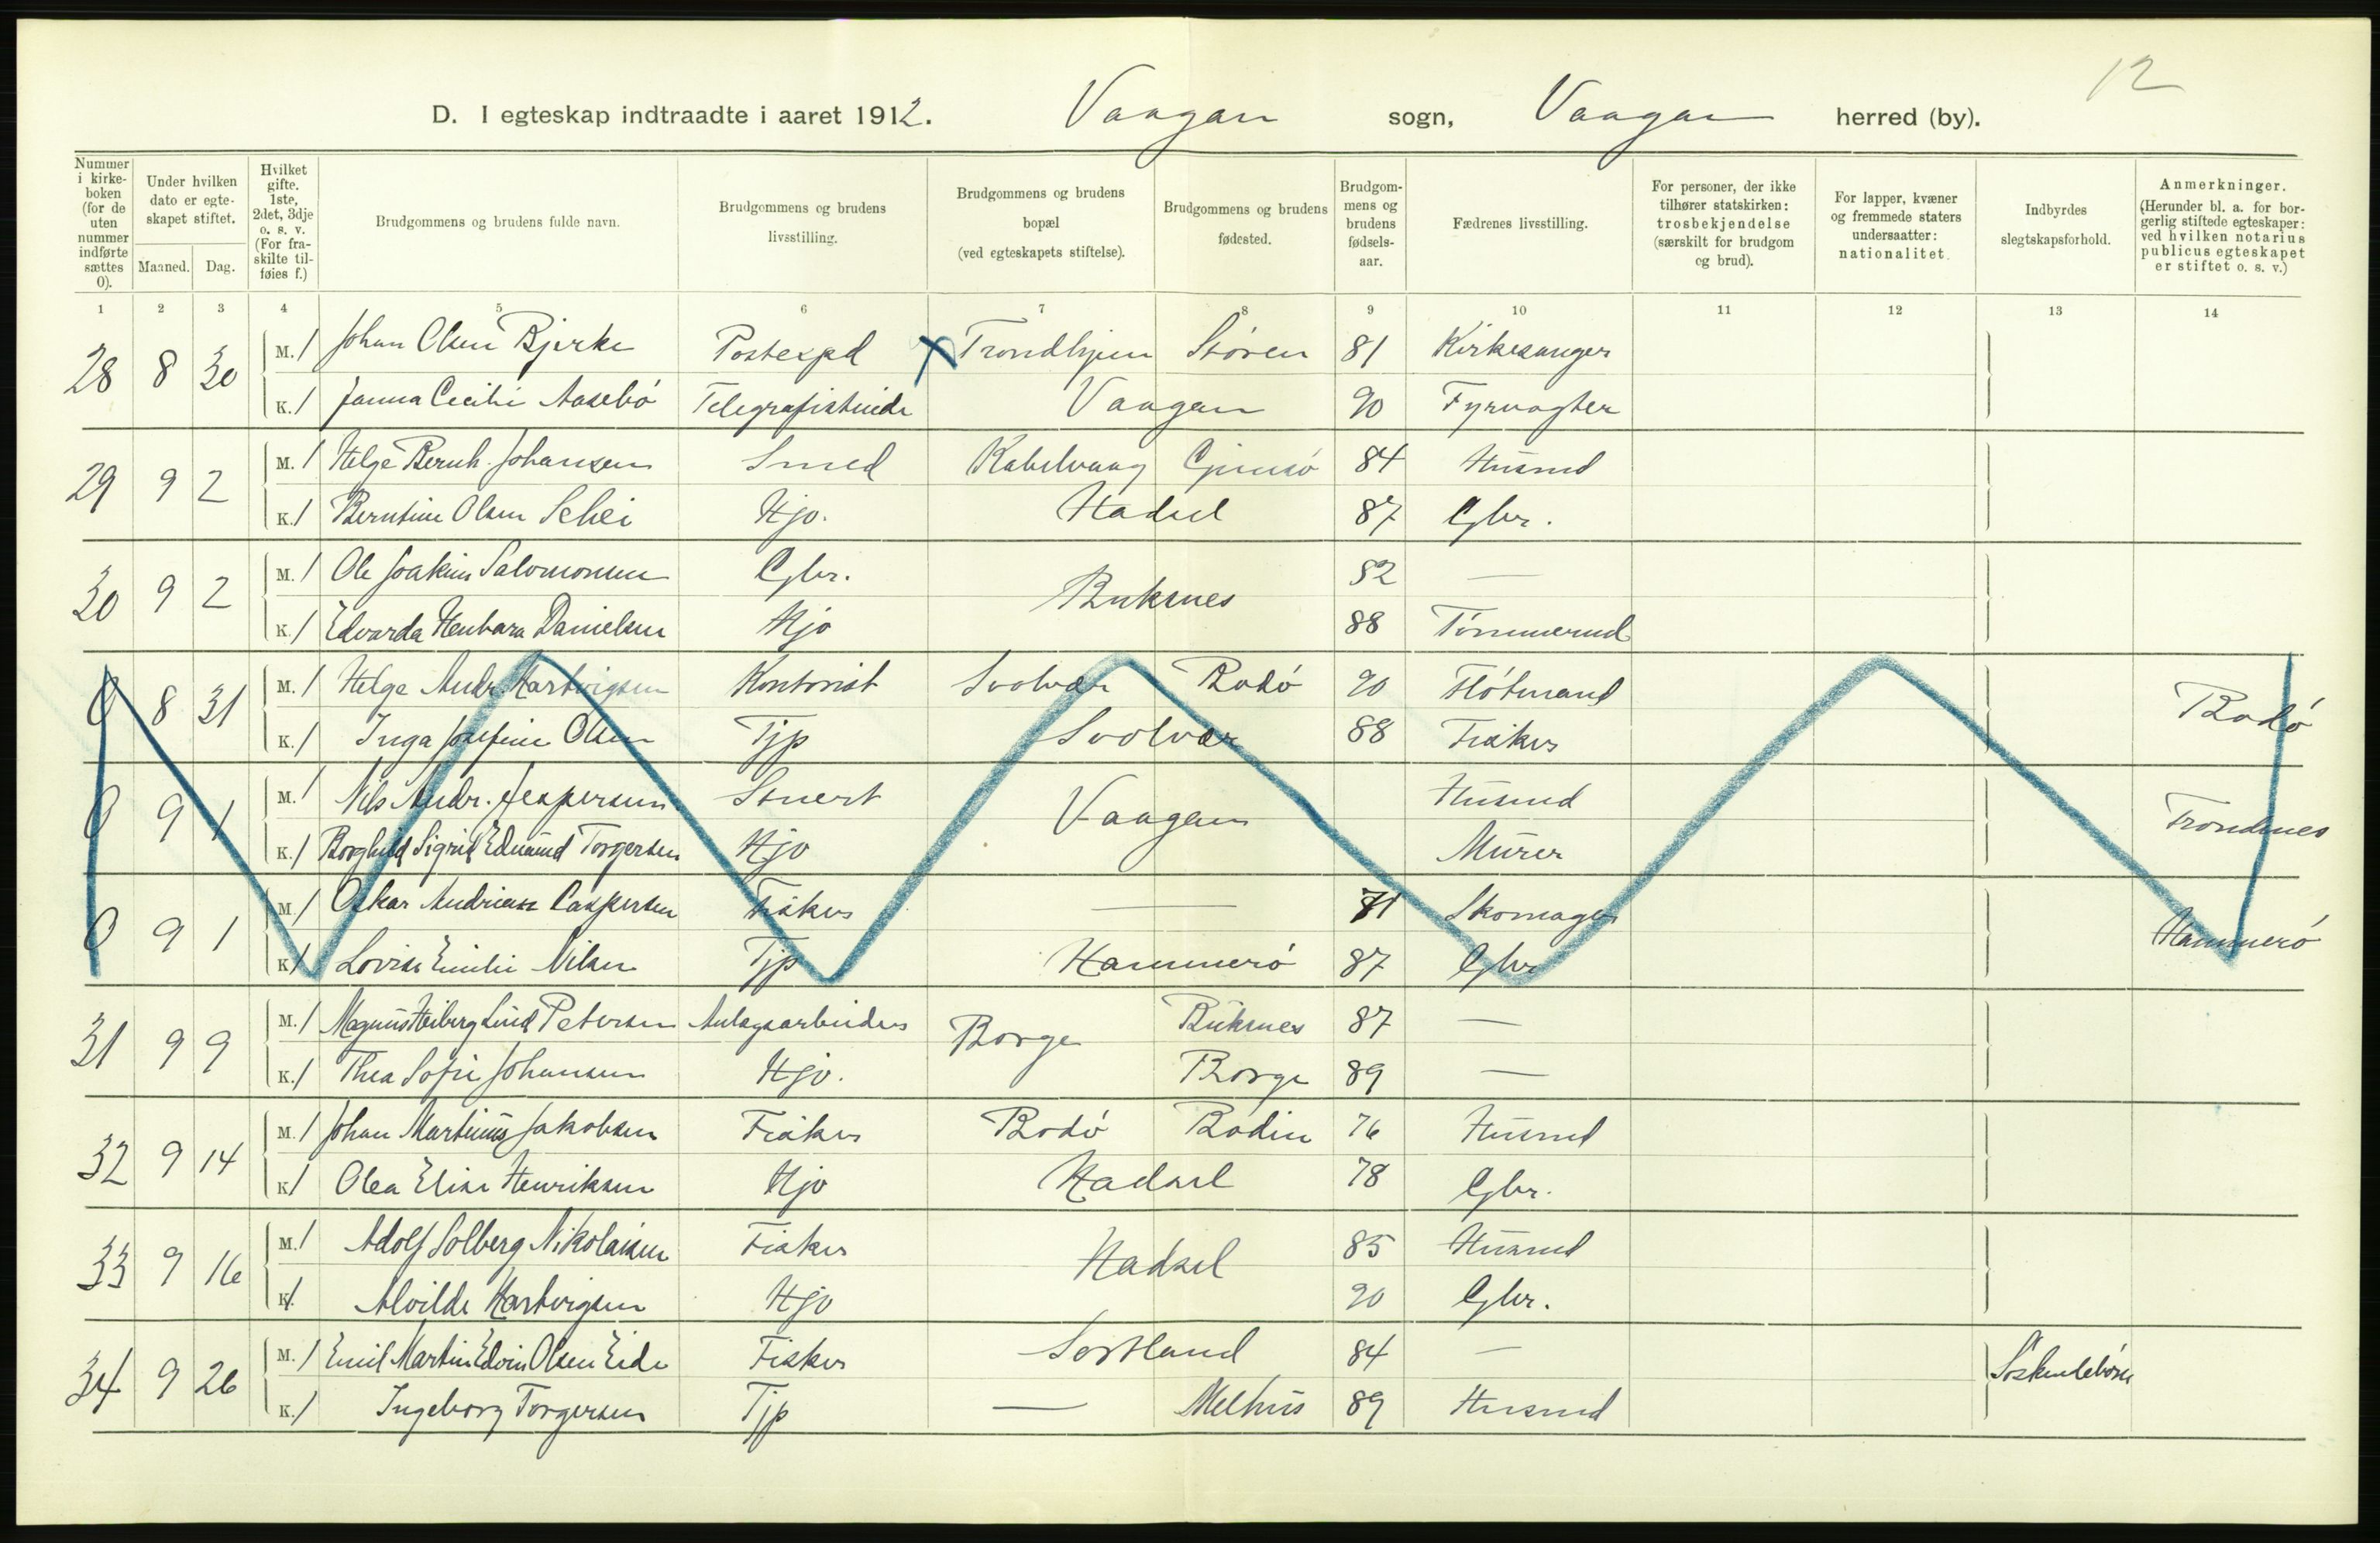 12
D. I egteskap indtraadte i aaret 1912. Vaagan sogn, Vaagan herred (by).
Nummer i kirkeboken (for de uten nummer indførte sættes 0).
Under hvilken dato er egteskapet stiftet.
Maaned. Dag.
Hvilket gifte. 1ste, 2det, 3dje o. s. v. (For fraskilte tilføies f.)
Brudgommens og brudens fulde navn.
Brudgommens og brudens livsstilling.
Brudgommens og brudens bopæl (ved egteskapets stiftelse).
Brudgommens og brudens fødested.
Brudgommens og brudens fødselsaar.
Fædrenes livsstilling.
For personer, der ikke tilhører statskirken: trosbekjendelse (særskilt for brudgom og brud).
For lapper, kvæner og fremmede staters undersaatter: nationalitet.
Indbyrdes slegtskapsforhold.
Anmerkninger. (Herunder bl. a. for borgerlig stiftede egteskaper: ved hvilken notarius publicus egteskapet er stiftet o. s. v.)
1 2 3 4 5 6 7 8 9 10 11 12 13 14
28 8 30 M. 1 Johan Olsen Bjerke Postexpd Trondhjem Støren 81 Kirkesanger
K. 1 Janna Cecilie Aasebö Telegrafistinde Vaagan 90 Fyrvogter
29 9 2 M. 1 Helge Bernh. Johansen Smed Kabelvaag Gimsö 84 Husmd
K. 1 Berntine Olsen Schei Hjo. Hadsel 87 Gbr.
30 9 2 M. 1 Ole Joakim Salomonsen Gbr. Buksnes 82 —
K. 1 Edvarda Danielsen Hjo 88 Tömmermd
0 8 31 M. 1 Helge Andr. Hartvigsen Kontorist Svolvær Bodö 90 Flötmand Bodö
K. 1 Inga Josefine Olsen Tjp Svolvær 88 Fisker
0 9 1 M. 1 Nils Andr. Jespersen Stuert Vaagan Husmd Trondnes
K. 1 Borghild Sigrid Edmund Torgersen Hjo Murer
0 9 1 M. 1 Oskar Andreas Caspersen Fisker — 71 Skomager Hammerö
K. 1 Lovise Emilie Nilsen Tjp Hammerö 87 Gbr
31 9 9 M. 1 Magnus Heiberg Lind Petersen Anlægsarbeider Borge Buksnes 87 —
K. 1 Thea Sofie Johansen Hjo. Borge 89 —
32 9 14 M. 1 Johan Martinus Jakobsen Fisker Bodö Bodin 76 Husmd
K. 1 Olea Elise Henriksen Hjo Hadsel 78 Gbr.
33 9 16 M. 1 Adolf Solberg Nikolaisen Fisker Hadsel 85 Husmd
K. 1 Alvilde Hartvigsen Hjo 90 Gbr.
34 9 26 M. 1 Emil Martin Edvin Olsen Eide Fisker Sortland 84 — Söskendebörn
K. 1 Ingeborg Torgersen Tjp — Melhus 89 Husmd